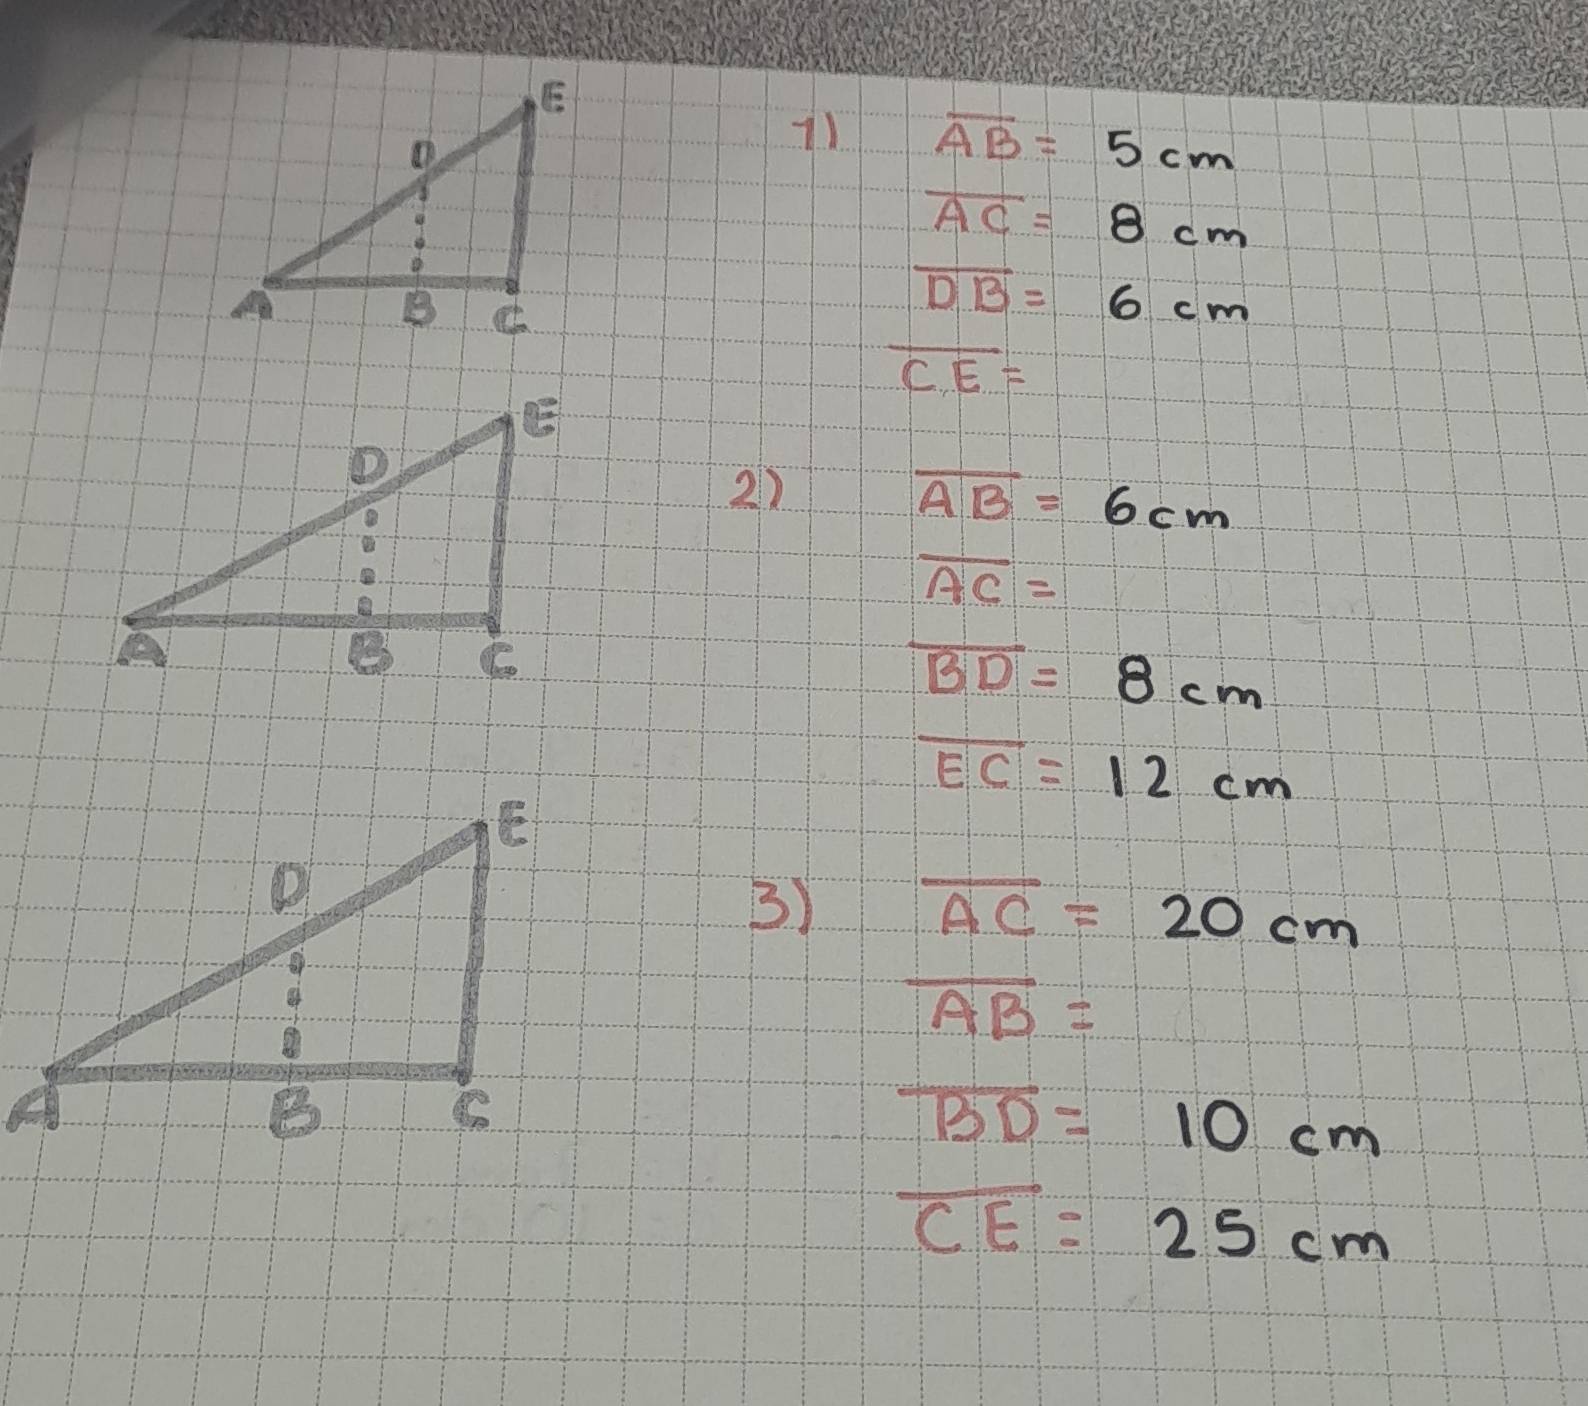 E
D
A B C
1) AB = 5 cm
AC = 8 cm
DB = 6 cm
CE =
E
D
A B C
2) AB = 6cm
AC =
BD = 8 cm
EC = 12 cm
E
D
A B C
3) AC = 20 cm
AB =
BD = 10 cm
CE = 25 cm